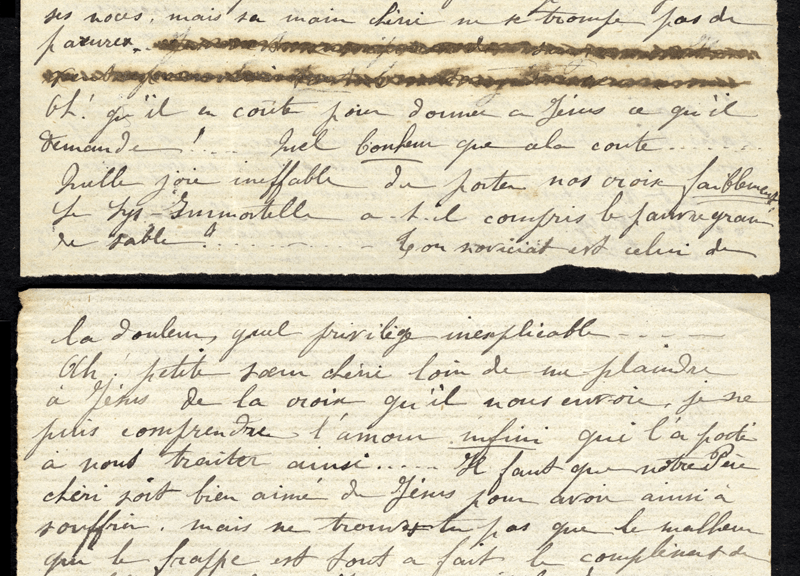 ses noces, mais sa main chérie ne se trompe pas de
parures.
Oh! qu'il en coûte pour donner à Jésus ce qu'il
demande!.... Quel bonheur que cela coute........
Quelle joie ineffable de porter nos croix faiblement
Le Lys-Immortelle a-t-il compris le pauvre grain
de sable?........... Ton noviciat est celui de
la douleur, quel privilège inexplicable......
Ah! petite sœur chérie loin de me plaindre
à Jésus de la croix qu'il nous envoie, je ne
puis comprendre l'amour infini qui l'a porté
à nous traiter ainsi..... Il faut que notre Père
chéri soit bien aimé de Jésus pour avoir ainsi à
souffrir, mais ne trouves-tu pas que le malheur
qui le frappe est tout à fait le complément de